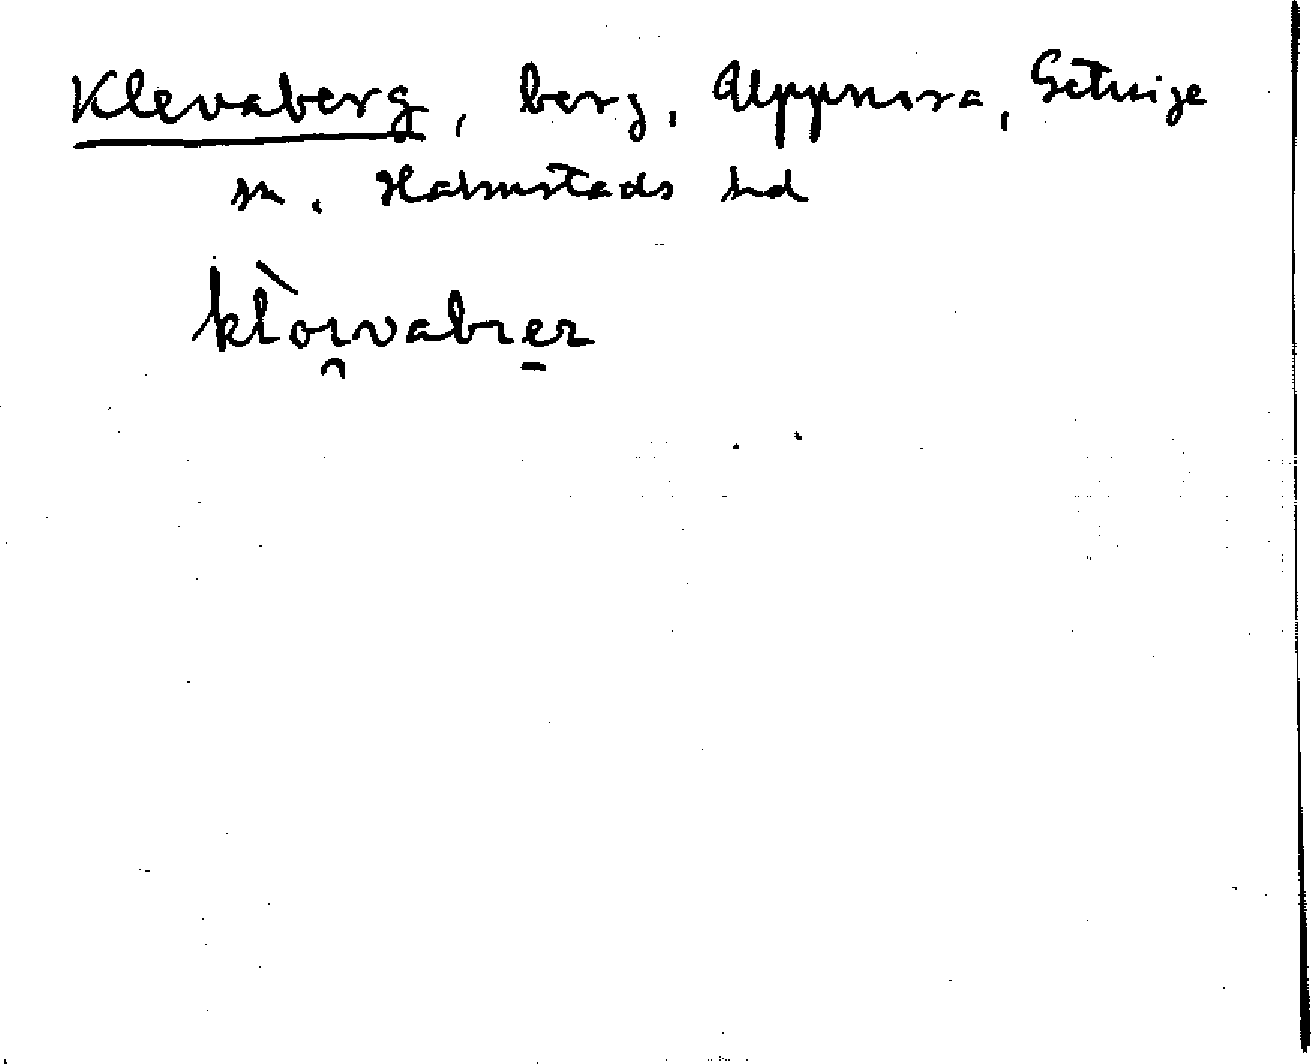 Klevaberg, berg, Uppnora, Getinge
sn. Halmstads hd